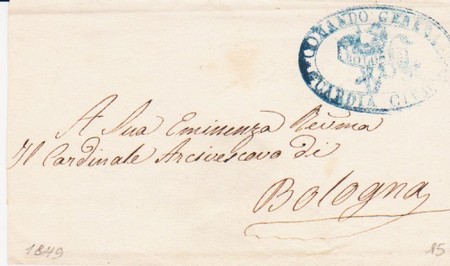 COMANDO GENER
BOLOGNA
GUARDIA CIV
A Sua Eminenza Revma
Il Cardinale Arcivescovo di
Bologna
1849
15